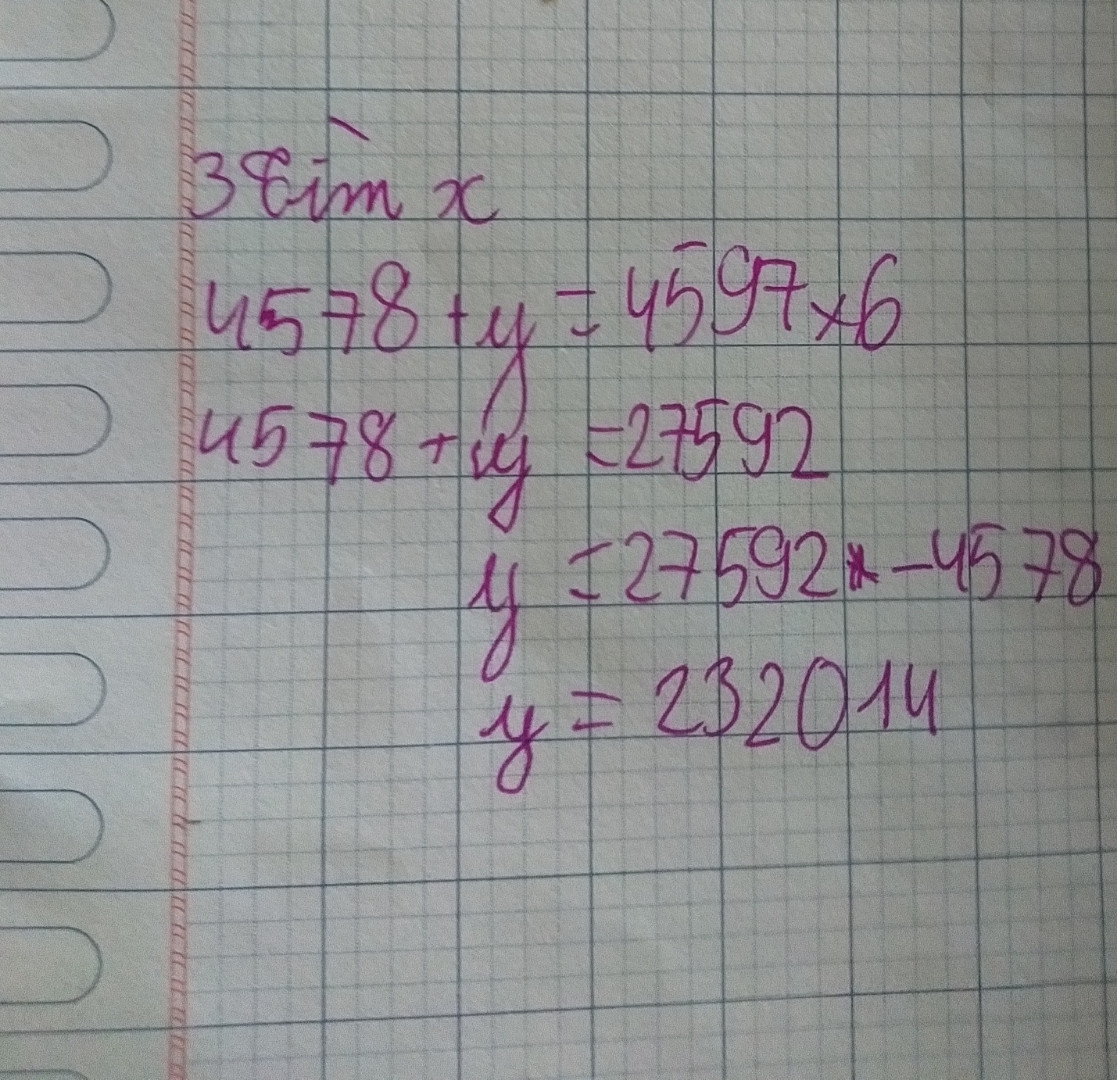 3 tìm x
4578 + y = 4597 x 6
4578 + y = 27592
y = 27592 - 4578
y = 232014